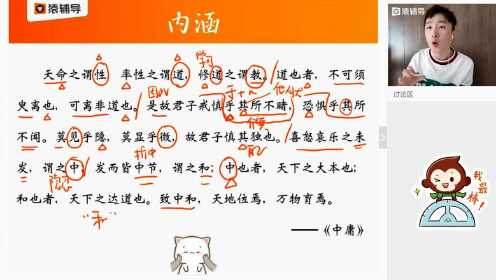 猿辅导
内涵
天命之谓性 率性之谓道，修道之谓教/道也者，不可须
臾离也，可离非道也。是故君子戒慎乎其所不睹，恐惧乎其所
不闻。莫见乎隐，莫显乎微，故君子慎其独也。/喜怒哀乐之未
发，谓之中；发而皆中节，谓之和；中也者，天下之大本也；
和也者，天下之达道也。致中和，天地位焉，万物育焉。
“和”
——《中庸》
猿辅导
讨论区
我最棒！